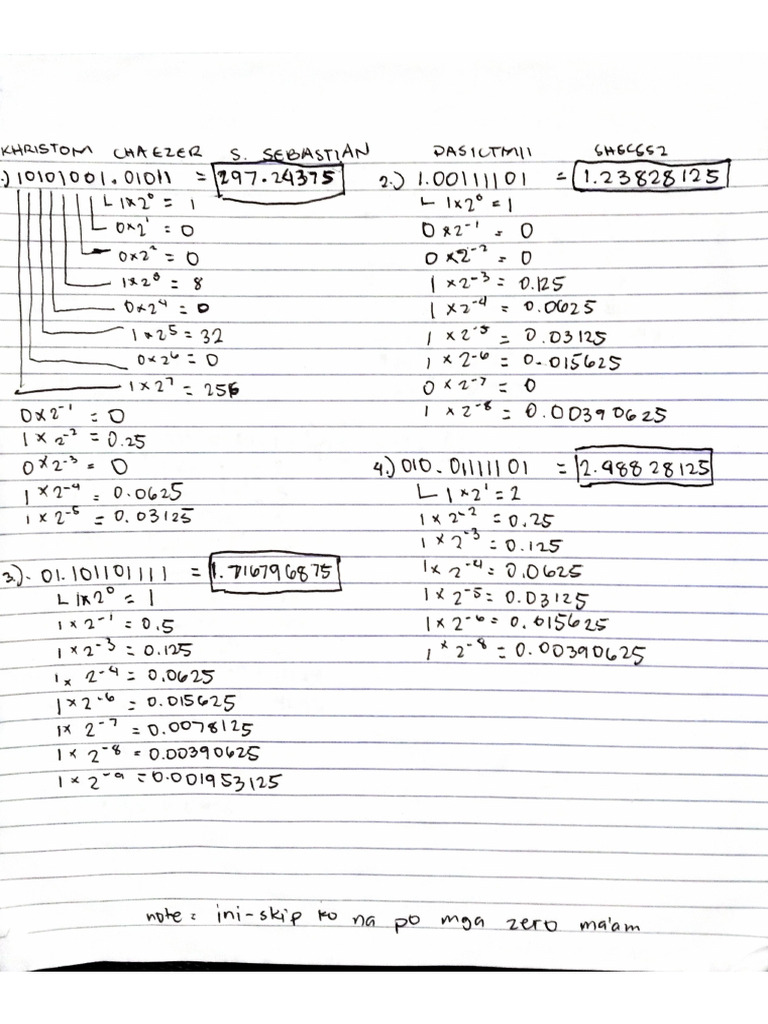 KHRISTOM CHAEZER S. SEBASTIAN DAS1CTM11
.) 10101001.01011 = 297.24375
L 1x2⁰ = 1
0x2¹ = 0
0x2² = 0
1x2³ = 8
0x2⁴ = 0
1x2⁵ = 32
0x2⁶ = 0
1x2⁷ = 256
0x2⁻¹ = 0
1x2⁻² = 0.25
0x2⁻³ = 0
1x2⁻⁴ = 0.0625
1x2⁻⁵ = 0.03125
2.) 1.00111101 = 1.23828125
L 1x2⁰ = 1
0x2⁻¹ = 0
0x2⁻² = 0
1x2⁻³ = 0.125
1x2⁻⁴ = 0.0625
1x2⁻⁵ = 0.03125
1x2⁻⁶ = 0.015625
0x2⁻⁷ = 0
1x2⁻⁸ = 0.00390625
3.). 01.101101111 = 1.716796875
L 1x2⁰ = 1
1x2⁻¹ = 0.5
1x2⁻³ = 0.125
1x2⁻⁴ = 0.0625
1x2⁻⁶ = 0.015625
1x2⁻⁷ = 0.0078125
1x2⁻⁸ = 0.00390625
1x2⁻⁹ = 0.001953125
4.) 010.01111101 = 2.48828125
L 1x2¹ = 2
1x2⁻² = 0.25
1x2⁻³ = 0.125
1x2⁻⁴ = 0.0625
1x2⁻⁵ = 0.03125
1x2⁻⁶ = 0.015625
1x2⁻⁸ = 0.00390625
note: ini-skip ko na po mga zero ma'am